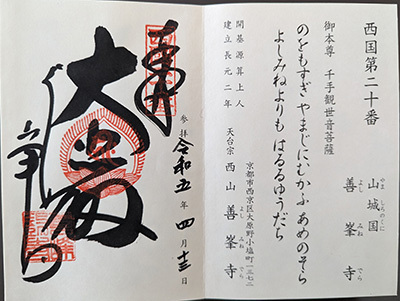 西国第二十番
山城国 善峯寺
やましろのくに よしみねでら
御本尊 千手観世音菩薩
のをもすぎやまじにむかふあめのそら
よしみねよりもはるるゆうだち
開基源算上人
建立長元二年
天台宗 西山善峯寺
よしみねでら
京都市西京区大原野小塩町一三七二
参拝 令和五年四月十三日
奉拝
大悲殿